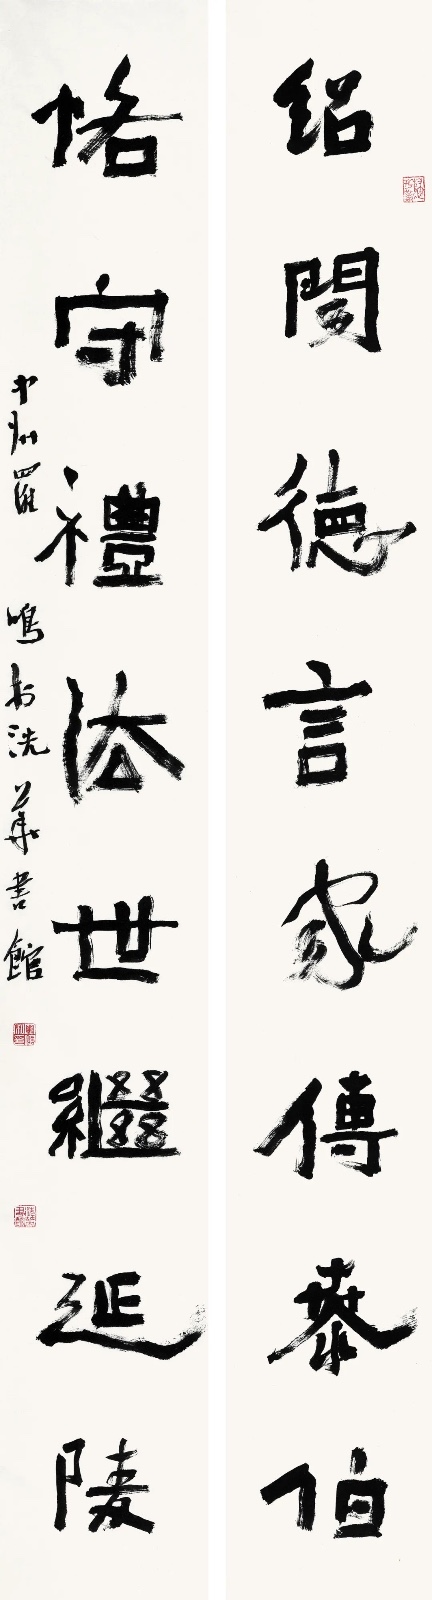 紹聞德言家傳泰伯
恪守禮法世繼延陵
中州羅鳴於洗華書館